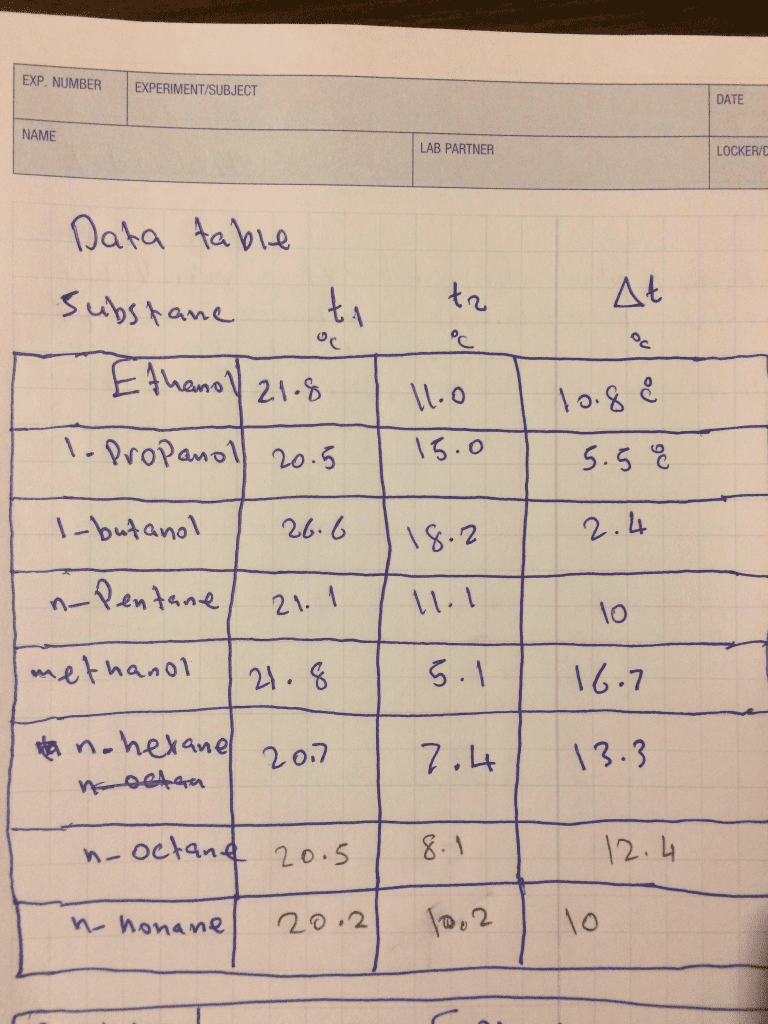 EXP. NUMBER EXPERIMENT/SUBJECT DATE
NAME LAB PARTNER
Data table
Substane t1 t2 Δt
°C °C °C
Ethanol 21.8 11.0 10.8 °C
1-Propanol 20.5 15.0 5.5 °C
1-butanol 26.6 18.2 2.4
n-Pentane 21.1 11.1 10
methanol 21.8 5.1 16.7
n-hexane 20.7 7.4 13.3
n-octan
n-octane 20.5 8.1 12.4
n-nonane 20.2 10.2 10